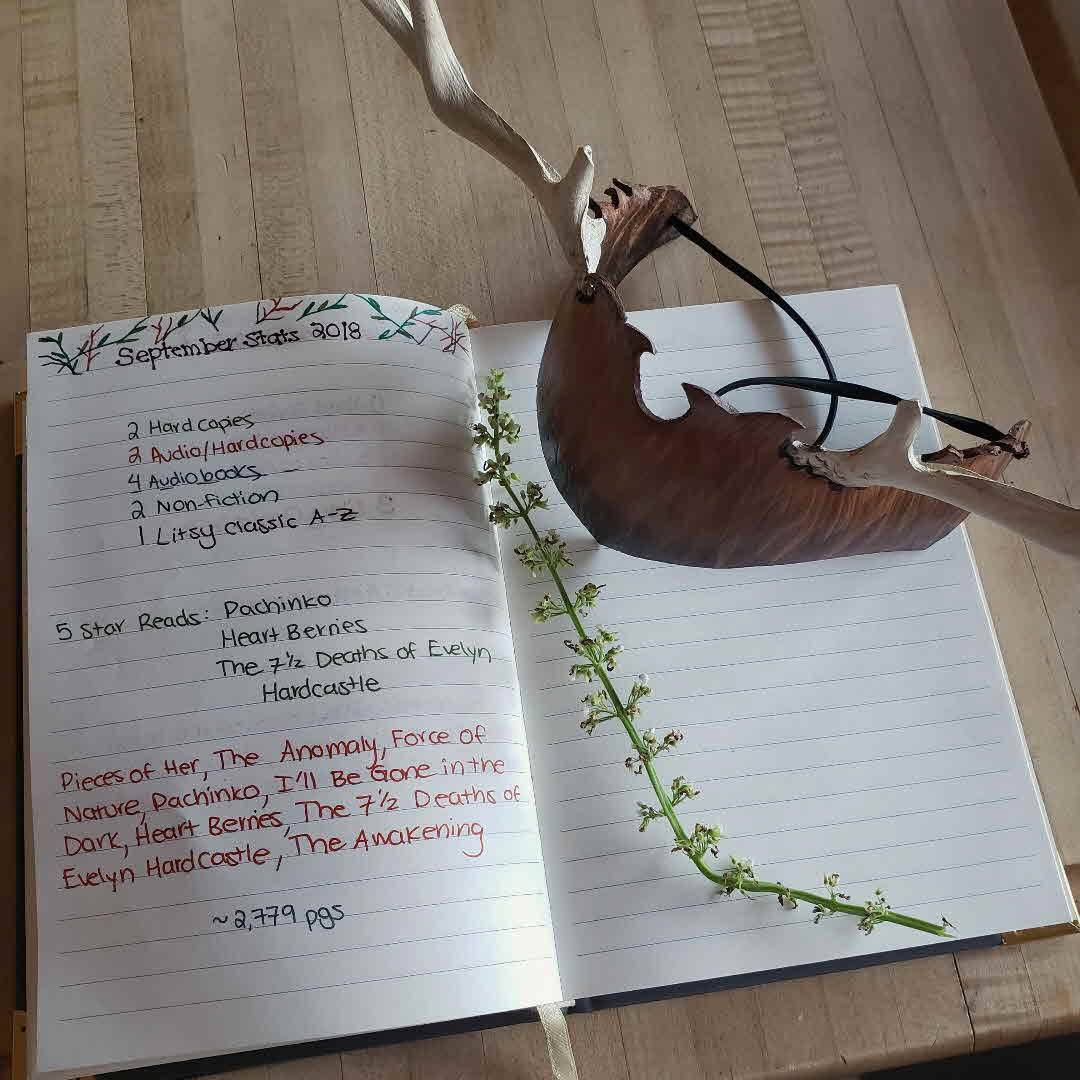 September Stats 2018
2 Hardcopies
2 Audio/Hardcopies
4 Audiobooks
2 Non-fiction
1 Litsy classic A-Z
5 Star Reads: Pachinko
Heart Berries
The 7½ Deaths of Evelyn
Hardcastle
Pieces of Her, The Anomaly, Force of
Nature, Pachinko, I'll Be Gone in the
Dark, Heart Berries, The 7½ Deaths of
Evelyn Hardcastle, The Awakening
~2,779 pgs